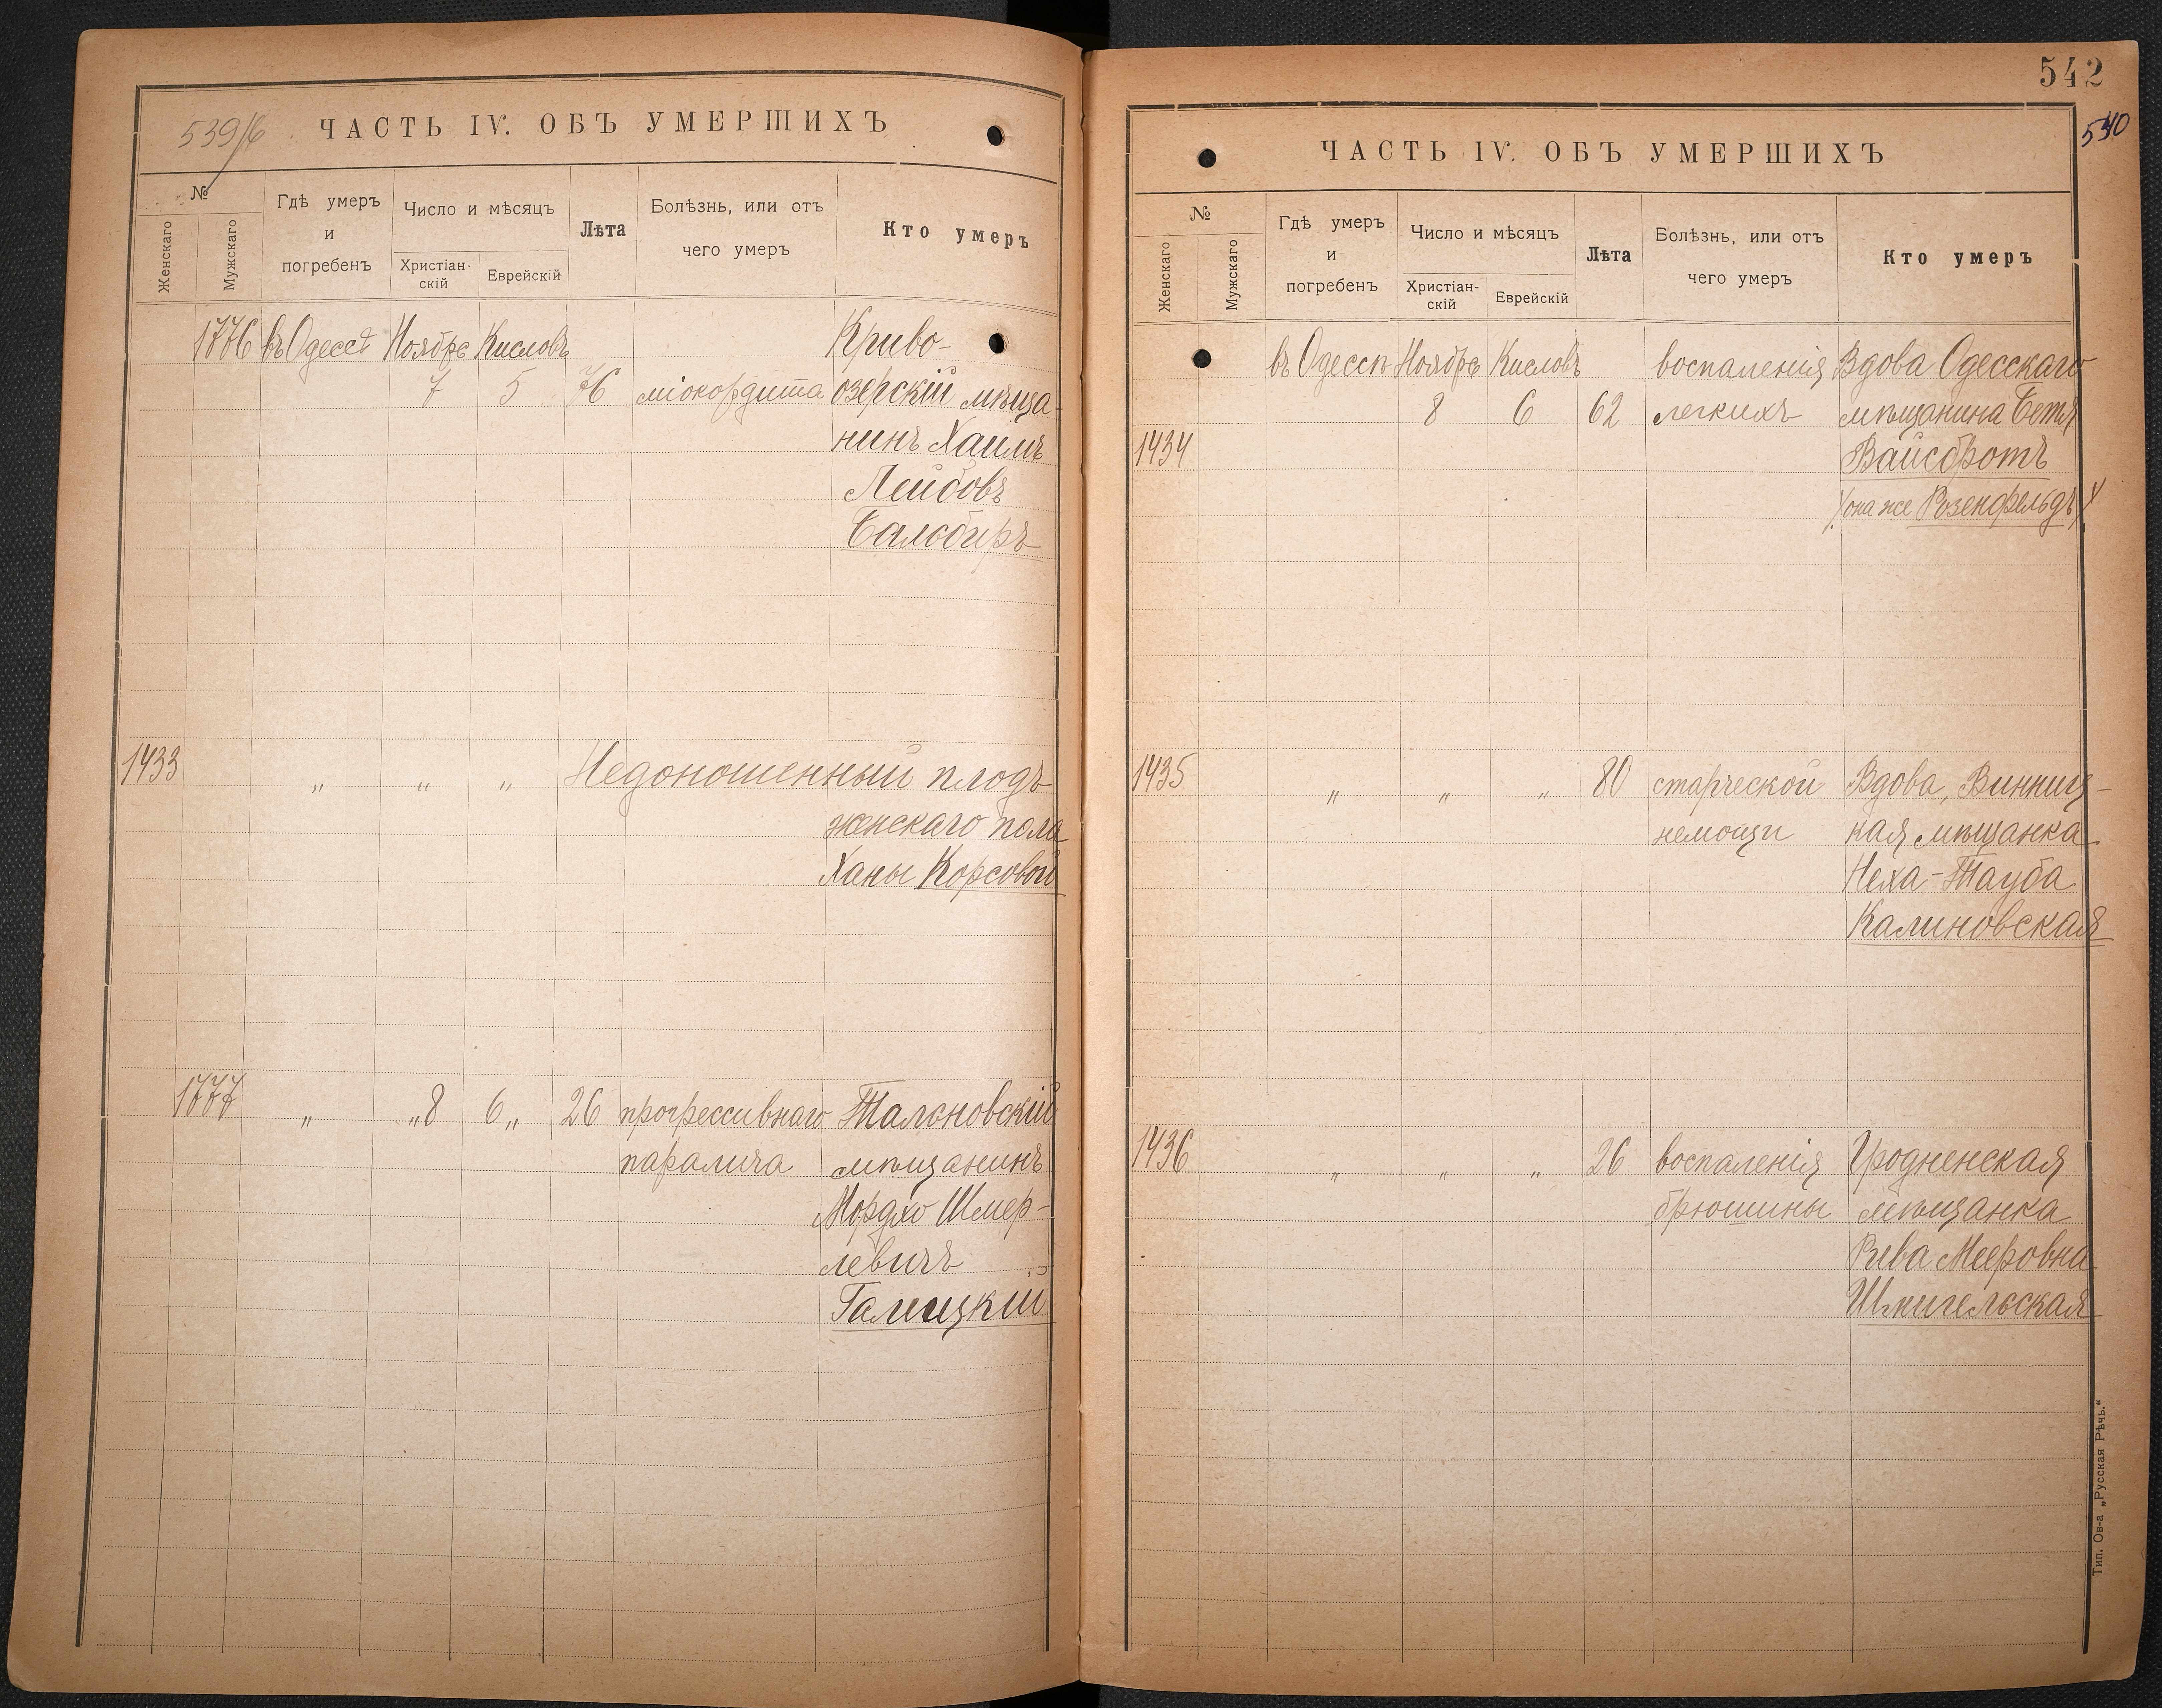 539/6
ЧАСТЬ IV. ОБЪ УМЕРШИХЪ
№
Женскаго
Мужскаго
Гдѣ умеръ
и
погребенъ
Число и мѣсяцъ
Христіан-
скій
Еврейскій
Лѣта
Болѣзнь, или отъ
чего умеръ
Кто умеръ
1776 въ Одессѣ Ноябрь Кисловъ Криво-
7 5 76 міокордита озерскій мѣща-
нинъ Хаимъ
Лейбовъ
Балобиръ
1433 „ „ „ Недоношенный плодъ
женскаго пола
Ханы Корсовой
1777 „ „8 6„ 26 прогрессивнаго Тальновскій
паралича мѣщанинъ
Мордко Шмер-
левичъ
Галицкій
542
540
ЧАСТЬ IV. ОБЪ УМЕРШИХЪ
№
Женскаго
Мужскаго
Гдѣ умеръ
и
погребенъ
Число и мѣсяцъ
Христіан-
скій
Еврейскій
Лѣта
Болѣзнь, или отъ
чего умеръ
Кто умеръ
въ Одессѣ Ноябрь Кисловъ воспаленія Вдова Одесскаго
8 6 62 легкихъ мѣщанина Бетя
1434 Вайсбротъ
(она же Розенфельдъ)
1435 „ „ „ 80 старческой Вдова, Винниц-
немощи кая мѣщанка
Неха-Тауба
Калиновская
1436 „ „ „ 26 воспаленія Гродненская
брюшины мѣщанка
Рива Мееровна
Шпигельская
Тип. Ов-а „Русская Рѣчь.“